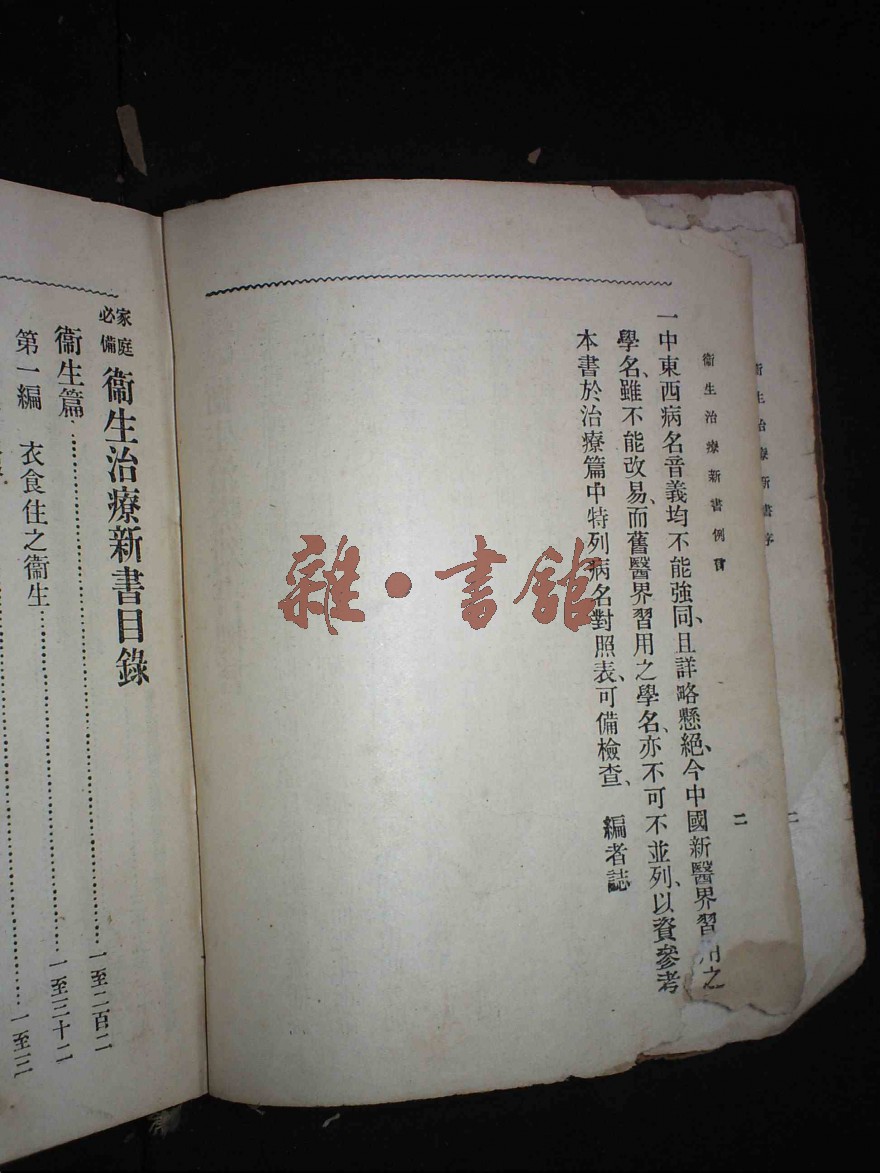 衞生治療新書序
衞生治療新書例言 二
一中東西病名音義均不能強同、且詳略懸絕、今中國新醫界習用之
學名、雖不能改易、而舊醫界習用之學名、亦不可不並列、以資參考
本書於治療篇中特列病名對照表、可備檢查、 編者誌
家庭必備 衞生治療新書目錄
衞生篇……一至二百二
第一編 衣食住之衞生……一至三十二
……一至三
雜·書館